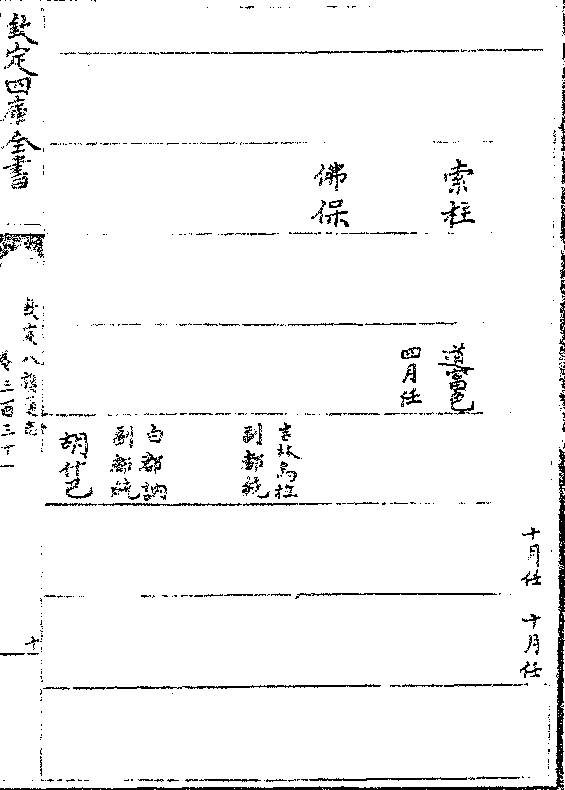 十月任
十月任
索柱
道富色
四月任
吉林烏拉
副都統
佛保
白都訥
副都統
胡什巴
欽定四庫全書
欽定八旗通志
卷三百三十一
十